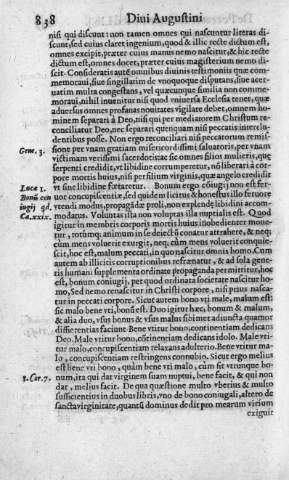 838 Diui Augustini
nisi qui discunt: non tamen omnes qui nascuntur literas di-
scunt, sed cuius claret ingenium, quod & illic recte dictum est,
omnes excipit, præter cuius manus nemo nascitur, & hic recte
dictum est, omnes docet, præter cuius magisterium nemo di-
scit. Consideratis autē omnibus diuinis testimoniis quæ com-
memoraui, siue singulatim de vnoquoque disputans, siue acer-
uatim multa congestans, vel quæcunque similia non comme-
moraui, nihil inuenitur nisi quod vniuersa Ecclesia tenet, quæ
aduersus omnes profanas nouitates vigilare debet, omnem ho-
minem separari à Deo, nisi qui per mediatorem Christum re-
conciliatur Deo, nec separari quenquam nisi peccatis interclu-
dentibus posse. Non ergo reconciliari nisi peccatorum remis-
Gene. 3. sione per vnam gratiam misericordissimi saluatoris, per vnam
victimam verissimi sacerdotis: ac sic omnes filios mulieris, quæ
serpenti credidit, vt libidine corrumperetur, nō liberari à cor-
pore mortis huius, nisi per filium virginis, quæ angelo credidit
Luca 1. vt sine libidine fœtaretur. Bonum ergo cōiugij non est fer-
Bonū con uor concupiscentiæ, sed quidam licitus & honestus illo feruore
iugij qd. vtendi modus, propagādæ proli, non explendę libidini accom-
Ca.xxix. modatus. Voluntas ista non voluptas illa nuptialis est. Quod
igitur in membris corporis mortis huius inobedienter moue-
tur, totumq; animum in se deiectū conatur attrahere, & neq;
cùm mens voluerit exurgit, neq; cùm mens voluerit conquie-
scit, hoc est, malum peccati, in quo nascitur omnis homo. Cum
autem ab illicitis corruptionibus refrenatur, & ad sola gene-
ris humani supplementa ordinate propaganda permittitur, hoc
est, bonum coniugij, per quod ordinata societate nascitur ho-
mo, Sed nemo renascitur in Christi corpore, nisi prius nasca-
tur in peccati corpore. Sicut autem bono vti male, malum est:
sic malo bene vti, bonū est. Duo igitur hæc, bonum & malum,
& alia duo, vsus bonus & vsus malus sibimet adiuncta quatuor
differentias faciunt. Bene vtitur bono, continentiam dedicans
Deo. Male vtitur bono, cōtinentiam dedicans idolo. Male vti-
tur malo, concupiscentiam relaxans adulterio. Bene vtitur ma-
lo, concupiscentiam restringens connubio. Sicut ergo melius
est bene vti bono, quàm bene vti malo, cum sit vtrunque bo-
1.Cor.7. num, ita qui dat virginem suam nuptui, bene facit, & qui non
dat, melius facit. De qua quæstione multo vberius & multo
sufficientius in duobus libris, vno de bono coniugali, altero de
sancta virginitate, quantū dominus dedit pro mearum virium
exiguit